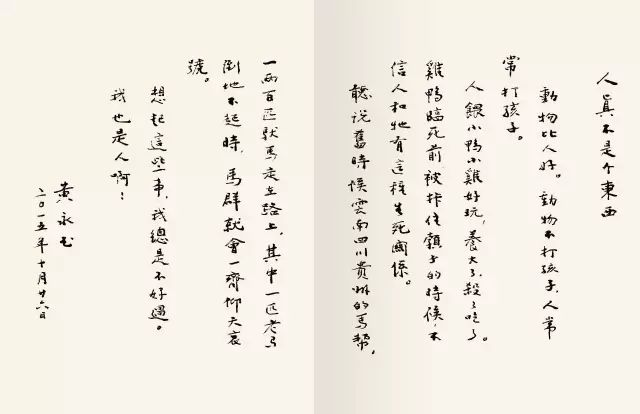 人真不是个東西
動物比人好。動物不打孩子，人常
常打孩子。
人餵小鴨小雞好玩，養大了，殺了吃了。
雞鴨臨死前被拤住頸子的時候，不
信人和牠有這種生死關係。
聽说舊時候雲南四川貴州的馬幫，
一两百匹馱馬走在路上，其中一匹老馬
倒地不起時，馬群就會一齊仰天哀
號。
想起這些事，我總是不好過。
我也是人啊！
黃永玉
二〇一五年十月廿六日